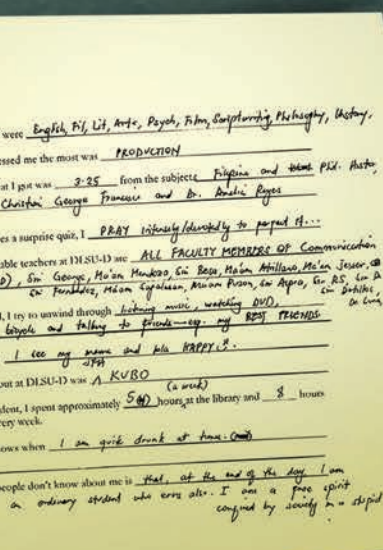 were English, Fil, Lit, Arts, Psych, Film, Scriptwriting, Philosophy, History,
essed me the most was PRODUCTION
at I got was 3.25 from the subjects Filipino and Phil. Histo,
Christian George Francisco and Dr. Amelia Reyes
es a surprise quiz, I PRAY intensely/devotedly to perfect it...
able teachers at DLSU-D are ALL FACULTY MEMBERS OF Communication
D), Sir George, Ma'am Mendoza, Sir Bega, Ma'am Atillano, Ma'am Jesser,
Sir Fernandez, Ma'am Ma'am Sir Aspra, Sir RS, Sir D
, I try to unwind through listening music, watching DVD,
bicycle and talking to friends my BEST FRIENDS
I see my mama and lola HAPPY :).
out at DLSU-D was KUBO
(a week)
dent, I spent approximately 5 hours at the library and 8 hours
very week.
ows when I am quik drunk at home.
people don't know about me is that, at the end of the day I am
an ordinary student who errs also. I am a free spirit
confined by society in a stupid